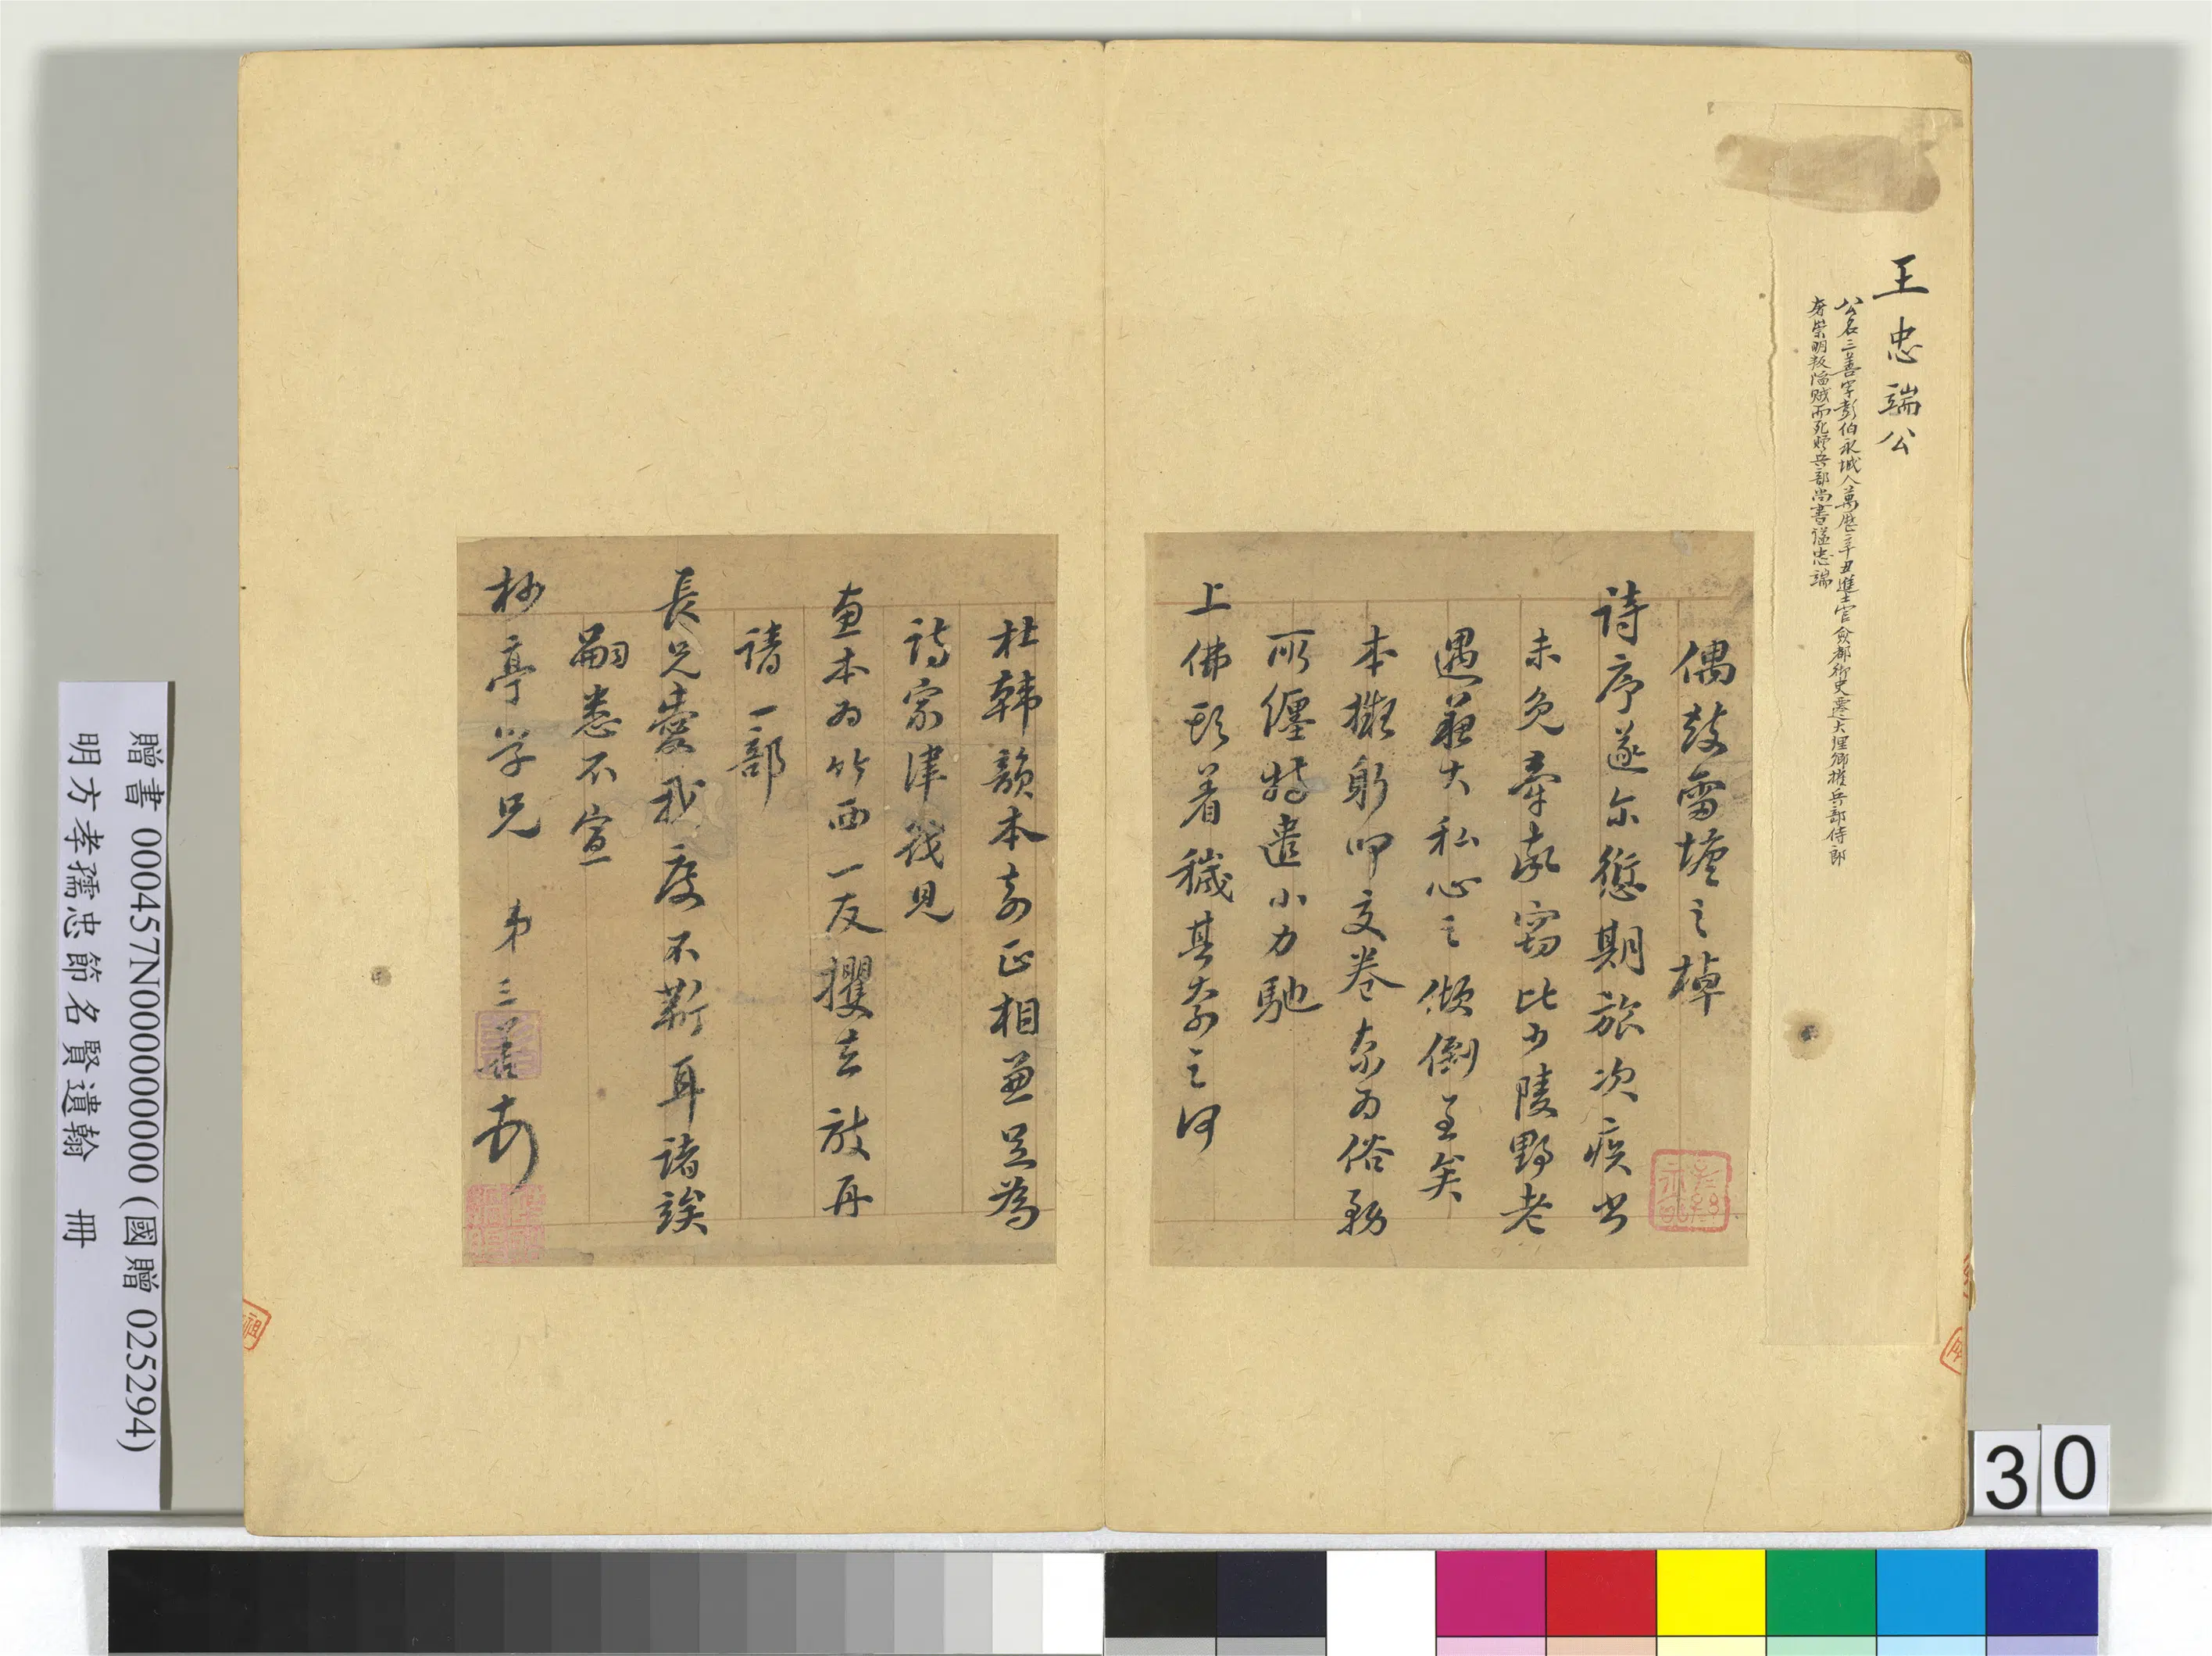 王忠端公
公名三善字彭伯永城人萬歷辛丑進士官僉都御史遷大理卿擢兵部侍郎
奢崇明叛陷賊而死贈兵部尚書諡忠端
偶鼓雷塘之棹
詩序遂尔愆期旅次疾出
未免牽率窃比少陵野老
遇蘇大私心之傾倒至矣
本擬躬叩交卷奈为俗務
所纏特遣小力馳
上佛頭着穢其奈之何
杜韓韻本刻正相兼足為
詩家津筏見
惠本为竹西一友攫去敢再
請一部
長兄愛我度不靳耳諸誒
嗣悉不宣
杪亭学兄 弟三善頓
贈書 000457N000000000 (國贈 025294)
明方孝孺忠節名賢遺翰 冊
30